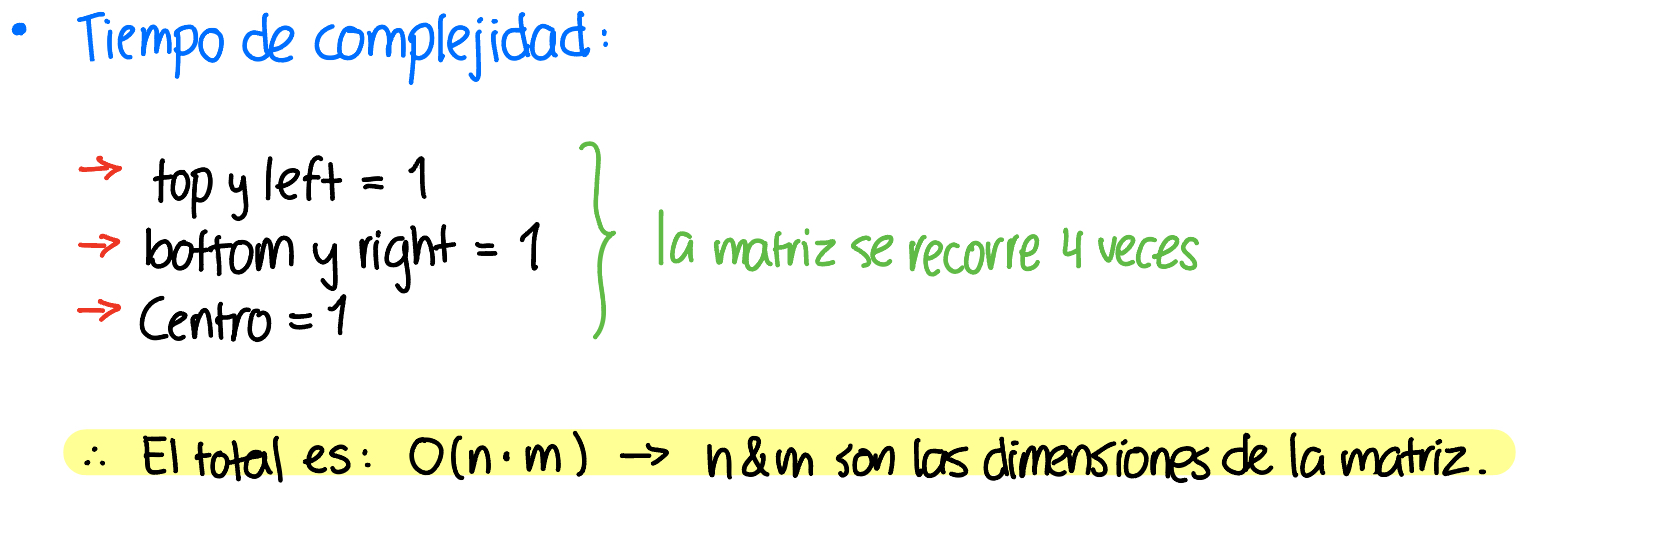 • Tiempo de complejidad:
→ top y left = 1
→ bottom y right = 1
la matriz se recorre 4 veces
→ Centro = 1
∴ El total es: O(n·m) → n & m son las dimensiones de la matriz.